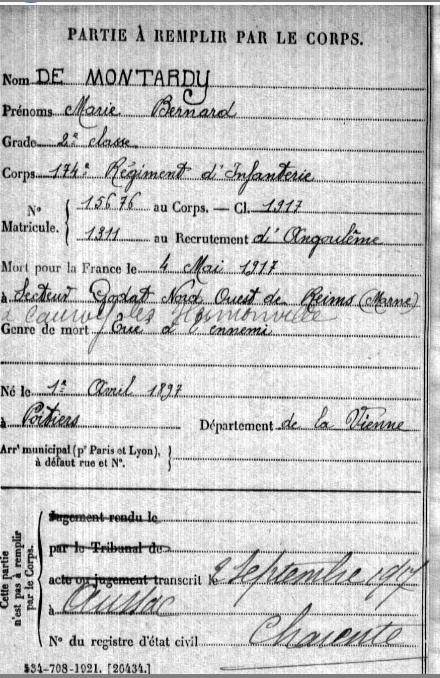 PARTIE À REMPLIR PAR LE CORPS.
Nom DE MONTARDY
Prénoms Marie Bernard
Grade 2e classe
Corps 174e Régiment d'Infanterie
No Matricule. { 15676 au Corps. — Cl. 1917
1311 au Recrutement d'Angoulême
Mort pour la France le 4 Mai 1917
à Secteur Godat Nord Ouest de Reims (Marne)
à Cauroy les Hermonville
Genre de mort Tué à l'ennemi
Né le 1er Avril 1897
à Poitiers Département de la Vienne
Arrt municipal (pr Paris et Lyon), à défaut rue et No. }
Cette partie n'est pas à remplir par le Corps.
Jugement rendu le
par le Tribunal de
acte ou jugement transcrit le 2 Septembre 1917
à Aussac
Charente
No du registre d'état civil
534-708-1921. [26434.]